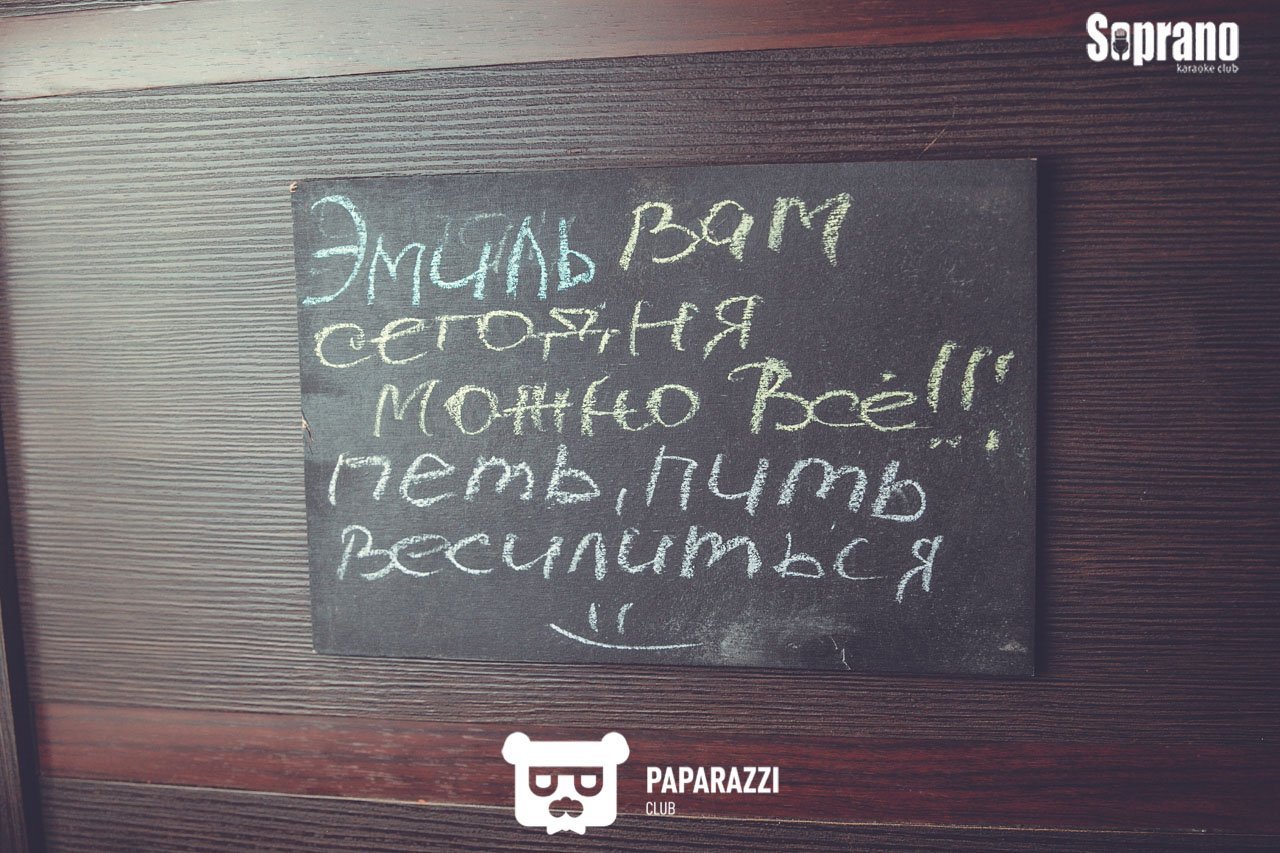 Soprano
karaoke club
Эмиль вам
сегодня
можно Всё!!!
петь, пить
весилиться
PAPARAZZI
CLUB